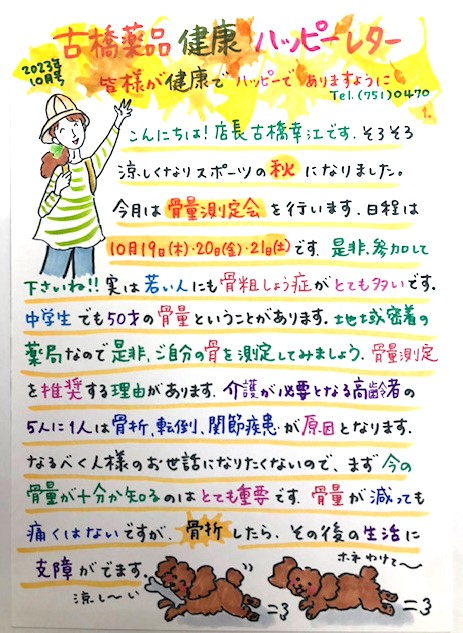 古橋薬品 健康 ハッピーレター
2023年
10月号
皆様が健康で ハッピーで ありますように
Tel.(751)0470
1.
こんにちは!店長古橋幸江です.そろそろ
涼しくなりスポーツの秋になりました。
今月は骨量測定会を行います.日程は
10月19日(木)・20日(金)・21日(土)です.是非、参加して
下さいね!!実は若い人にも骨粗しょう症がとても多いです.
中学生でも50才の骨量ということがあります.地域密着の
薬局なので是非、ご自分の骨を測定してみましょう.骨量測定
を推奨する理由があります.介護が必要となる高齢者の
5人に1人は骨折、転倒、関節疾患が原因となります.
なるべく人様のお世話になりたくないので、まず今の
骨量が十分か知るのはとても重要です.骨量が減っても
痛くはないですが、骨折したら、その後の生活に
支障がでます
ホネわけて〜
涼し〜い
=3
=3